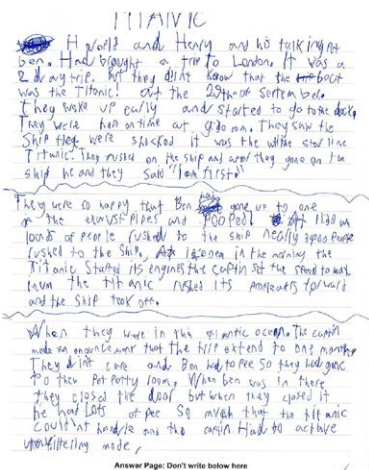 TITANIC
H world and Henry and his talking pet
ben. Had brought a trip to London. It was a
2 day trip. but they didnt know that the boat
was the Titanic! at the 29th of September.
They woke up early and started to go to the dock.
They were here on time at 9:00am. They saw the
Ship they were shocked it was the white star line
Titanic. They rushed on the ship and they gone on the
ship he and they said "I am first"
They were so happy that Ben gone up to one
on the exhaust pipes and POOPed. At 11:30 am
loads of people rushed to the ship nearly 3000 People
rushed to the Ship. in the morning the
Titanic Started its engines the captin set the speed to
the titanic rushed its propellers forward
and the ship took off.
When they were in the atlantic ocean. The captin
made an anouncement that the trip extend to one month.
They didnt care and Ben had to pee So they had gone
to the Pet Potty room. When ben was in there
they closed the door but when they closed it
he had lots of pee So much that the titanic
couldnt handle and the captin. Had to active
mode.
Answer Page: Don't write below here